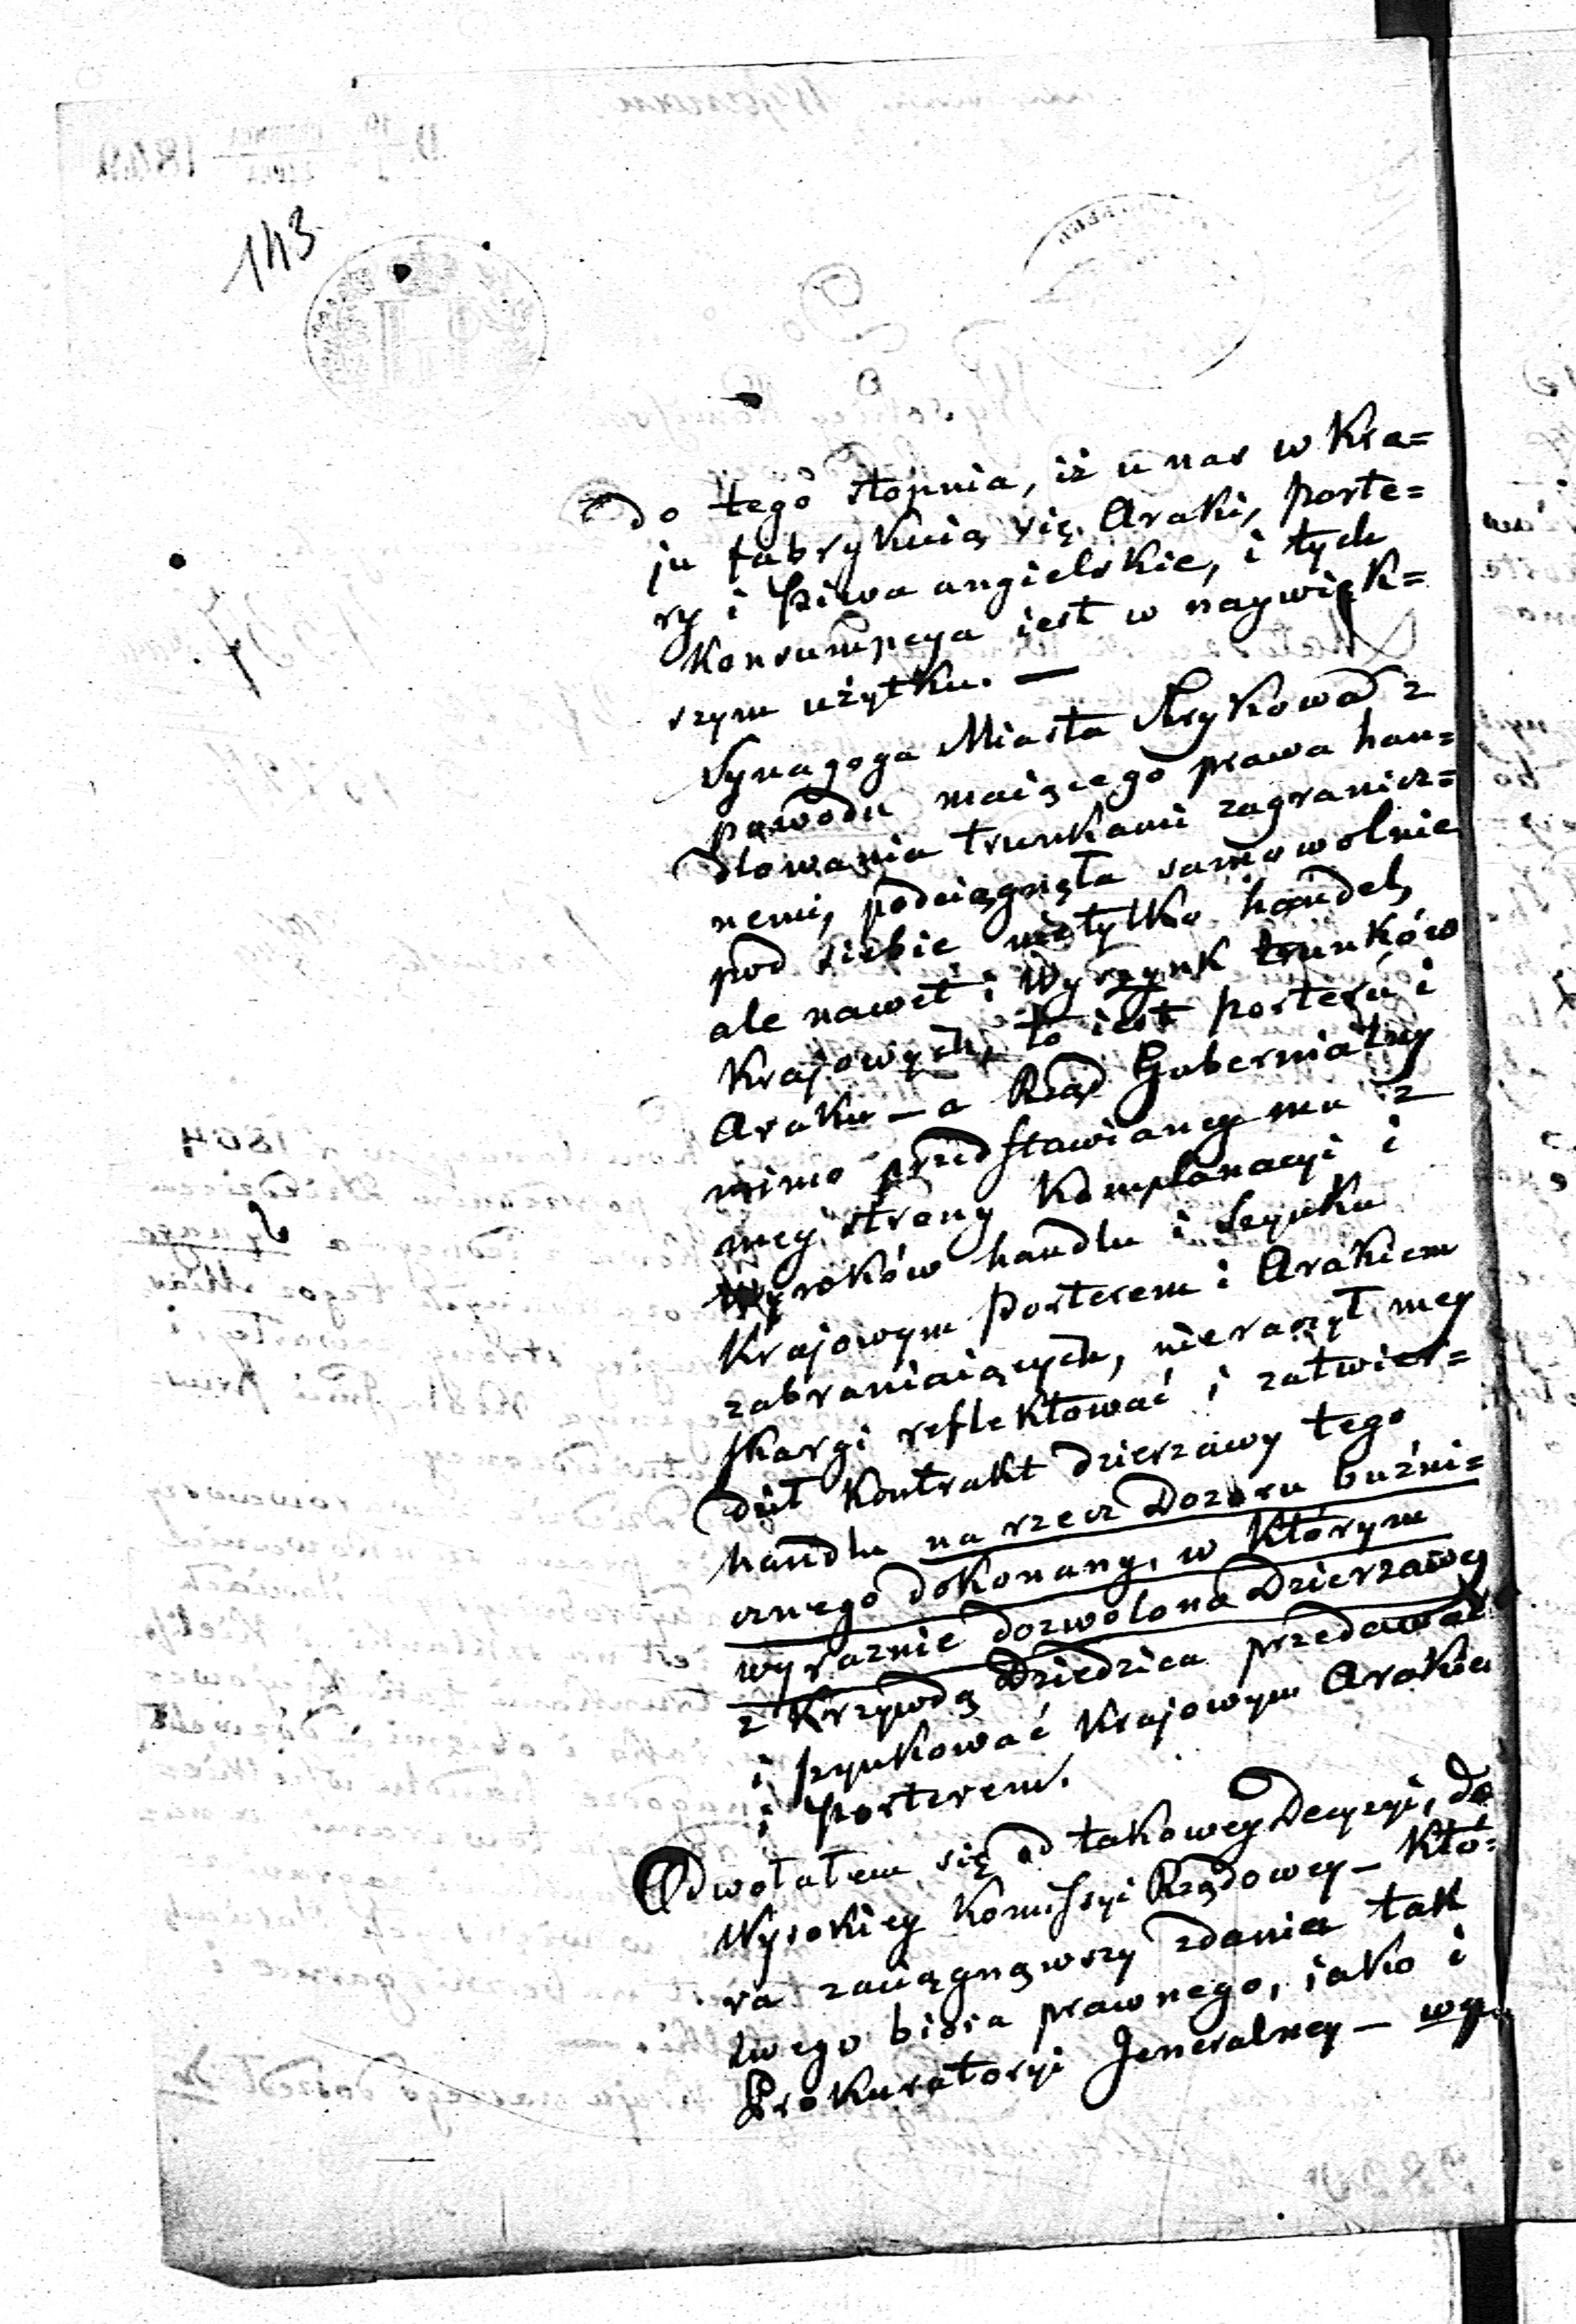 143
do tego stopnia, iż u nas w Kra=
ju fabrykuią się Araki, porte=
ry i Piwa angielskie, i tych
Konsumpcya iest w naywięk=
szym użytku. —
Synagoga Miasta Strykowa z
powodu maiącego prawa han=
dlowania trunkami zagranicz=
nemi, podciągnęła samowolnie
pod siebie nietylko handel,
ale nawet i Wyszynk trunków
Krajowych, to iest porteru i
Araku — a Rząd Gubernialny
mimo przedstawianey mu z
mey strony Komplanacyi i
Wyroków handlu i Szynku
Krajowym Porterem i Arakiem
zabraniaiących, nieraczył mey
skargi reflektować i zatwier=
dził Kontrakt dzierzawy tego
handlu na rzecz Dozoru buźni=
cznego dokonany, w którym
wyraznie dozwolono Dzierzawcy
z Krzywdą Dziedzica przedawać
i szynkować Krajowym Arakiem
i Porterem.
Odwołałem się od takowey Decyzyi, do
Wysokiey Kommissyi Rządowey — Któ=
ra zaciągnąwszy zdania tak
swego biora prawnego, iako i
Prokuratoryi Jeneralney —